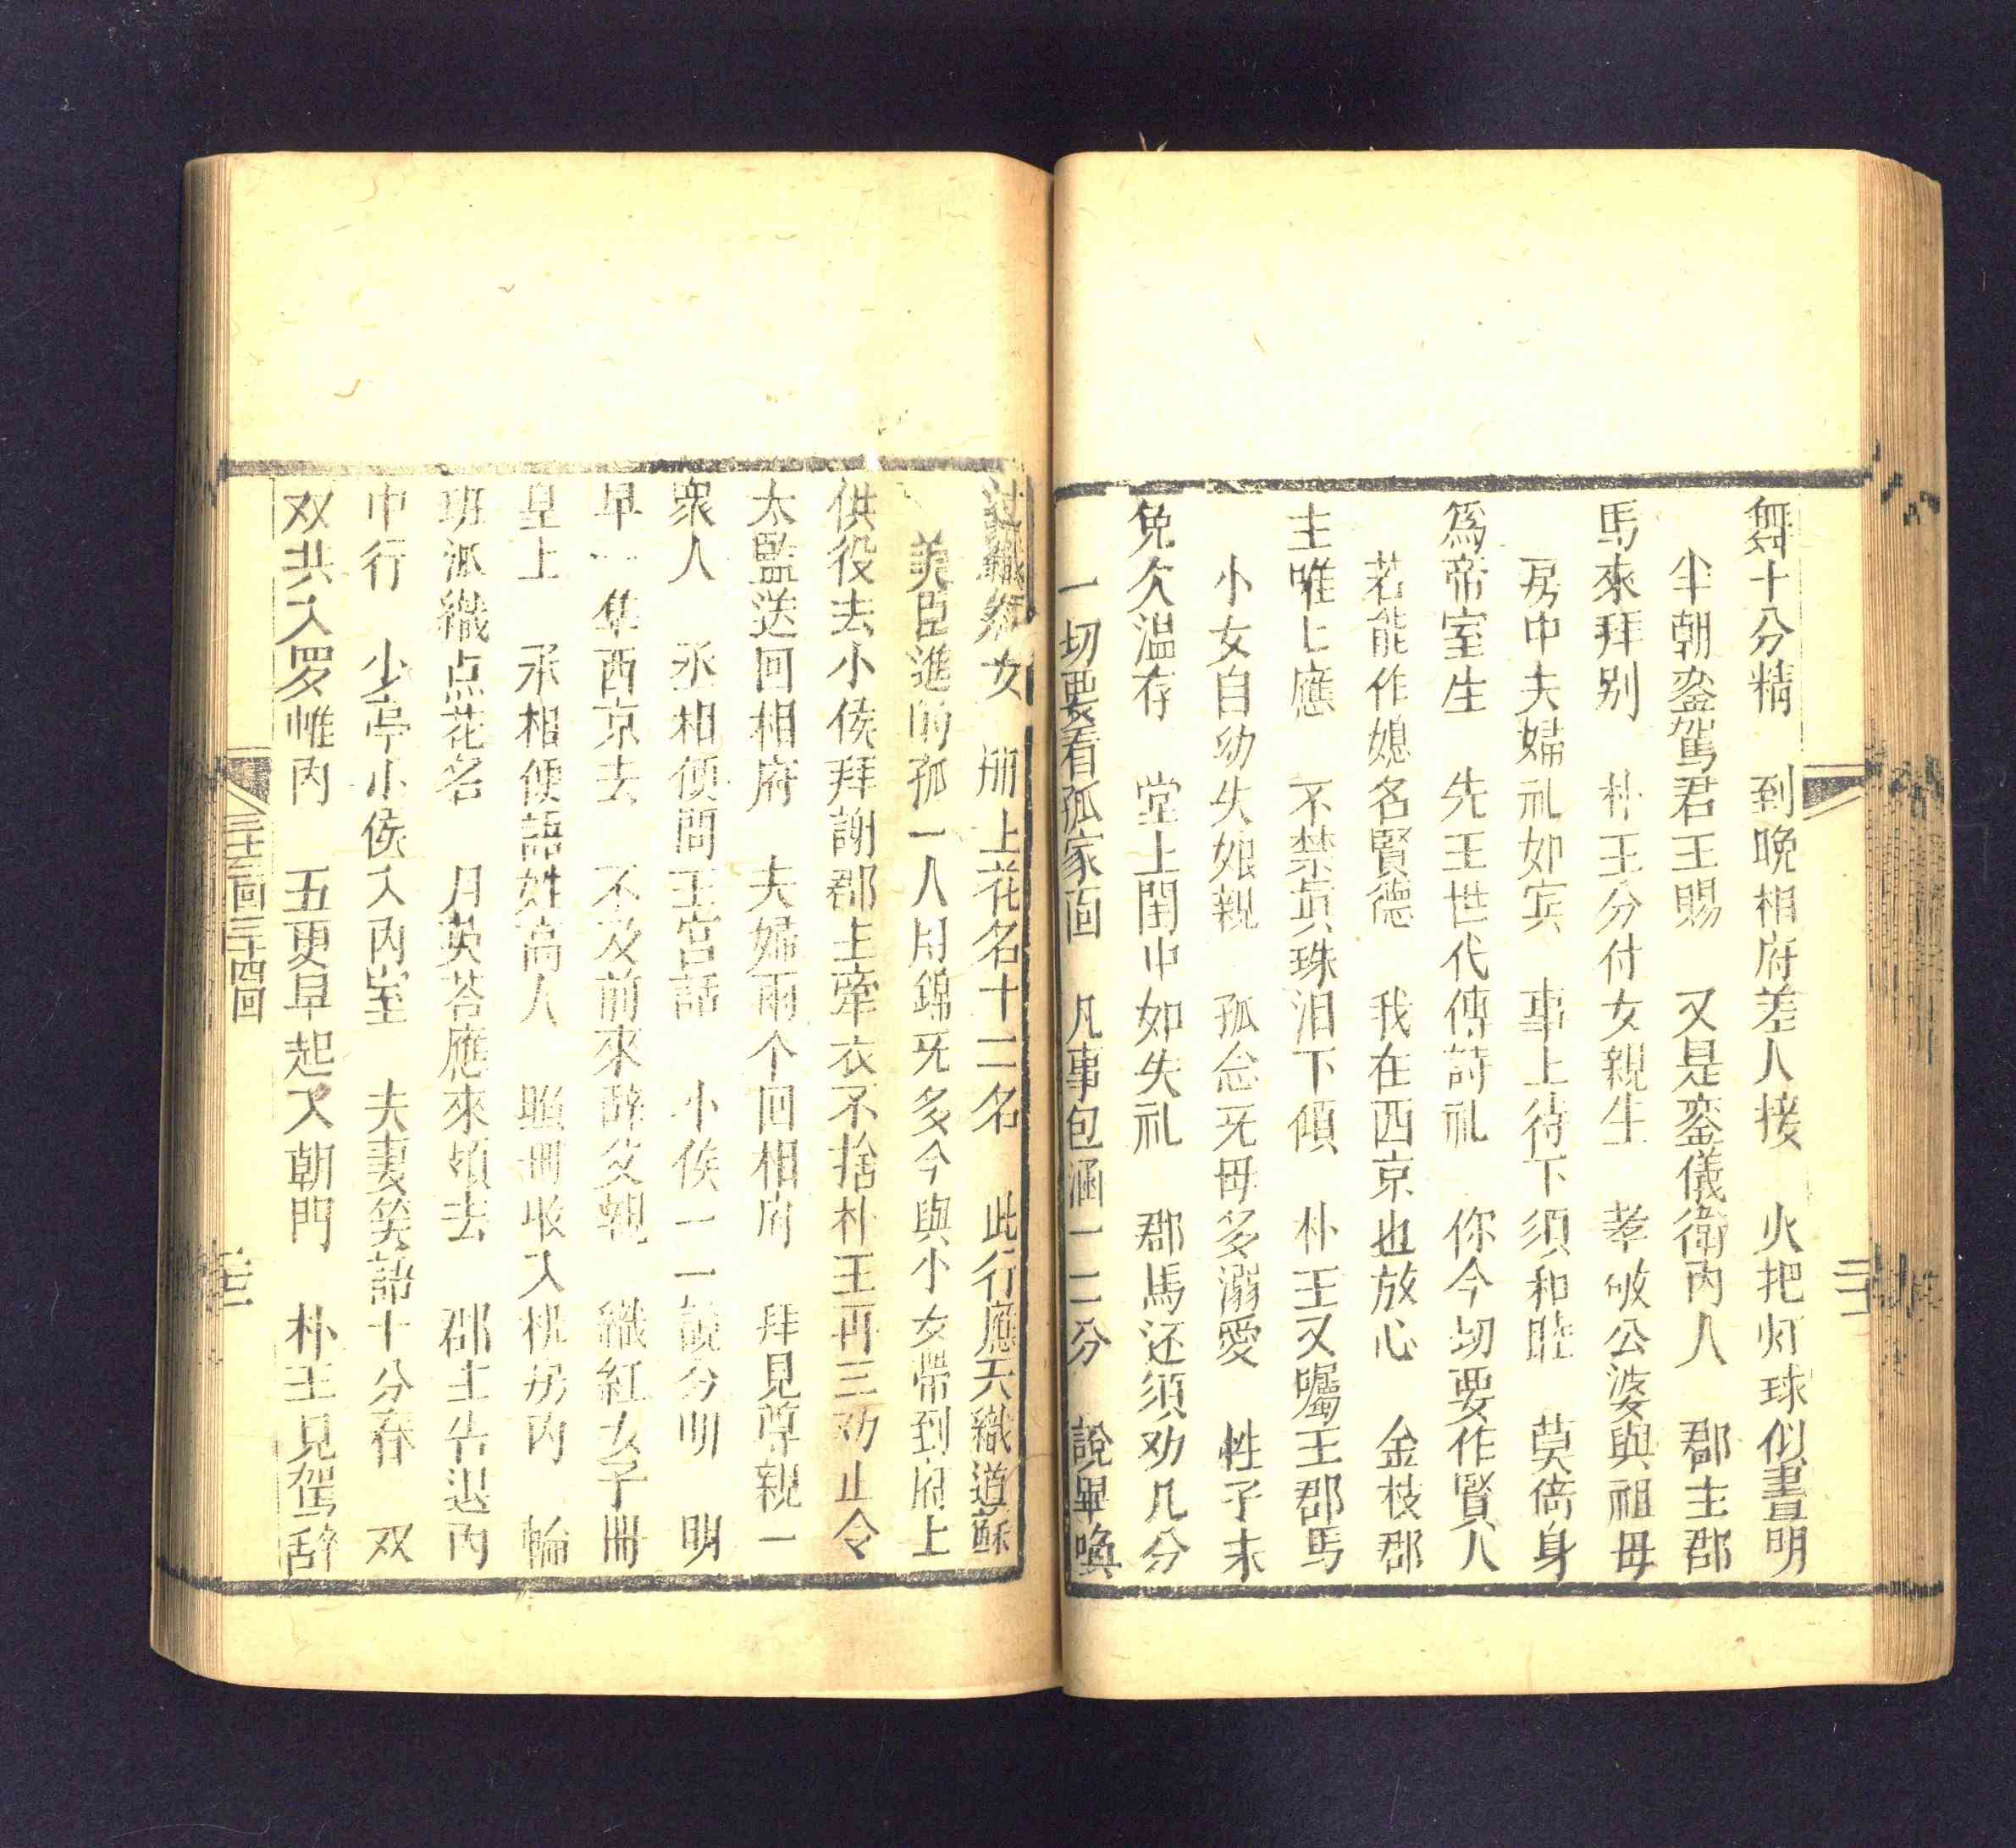 舞十分精　到晚相府差人接　火把灯球似晝明
半朝銮駕君王賜　又是銮儀衛內人　郡主郡
馬來拜別　朴王分付女親生　孝敬公婆與祖母
房中夫婦礼如宾　事上待下須和睦　莫倚身
爲帝室生　先王世代傳詩礼　你今切要作賢人
若能作媳名賢德　我在西京也放心　金枝郡
主唯匕應　不禁眞珠泪下傾　朴王又囑王郡馬
小女自幼失娘親　孤念无母多溺愛　性子未
免欠温存　堂上閨中如失礼　郡馬还須劝几分
一切要看孤家面　凡事包涵一二分　說畢喚
過織女　册上花名十二名　此行應天織道蘇
美臣進的孤一人用錦无多今與小女帶到府上
供役去小侯拜謝郡主牽衣不捨朴王再三劝止令
太監送回相府　夫婦兩个回相府　拜見尊親一
衆人　丞相便問王宮話　小侯一一說分明　明
早一隼西京去　不及前來辞父親　織紅女子冊
呈上　丞相便語姓高人　照冊收入机房內　輪
班派織点花名　月英荅應來領去　郡主告退內
中行　少亭小侯入內室　夫妻笑語十分春　双
双共入罗帷內　五更早起入朝門　朴王見駕辞
三十三回三十四回